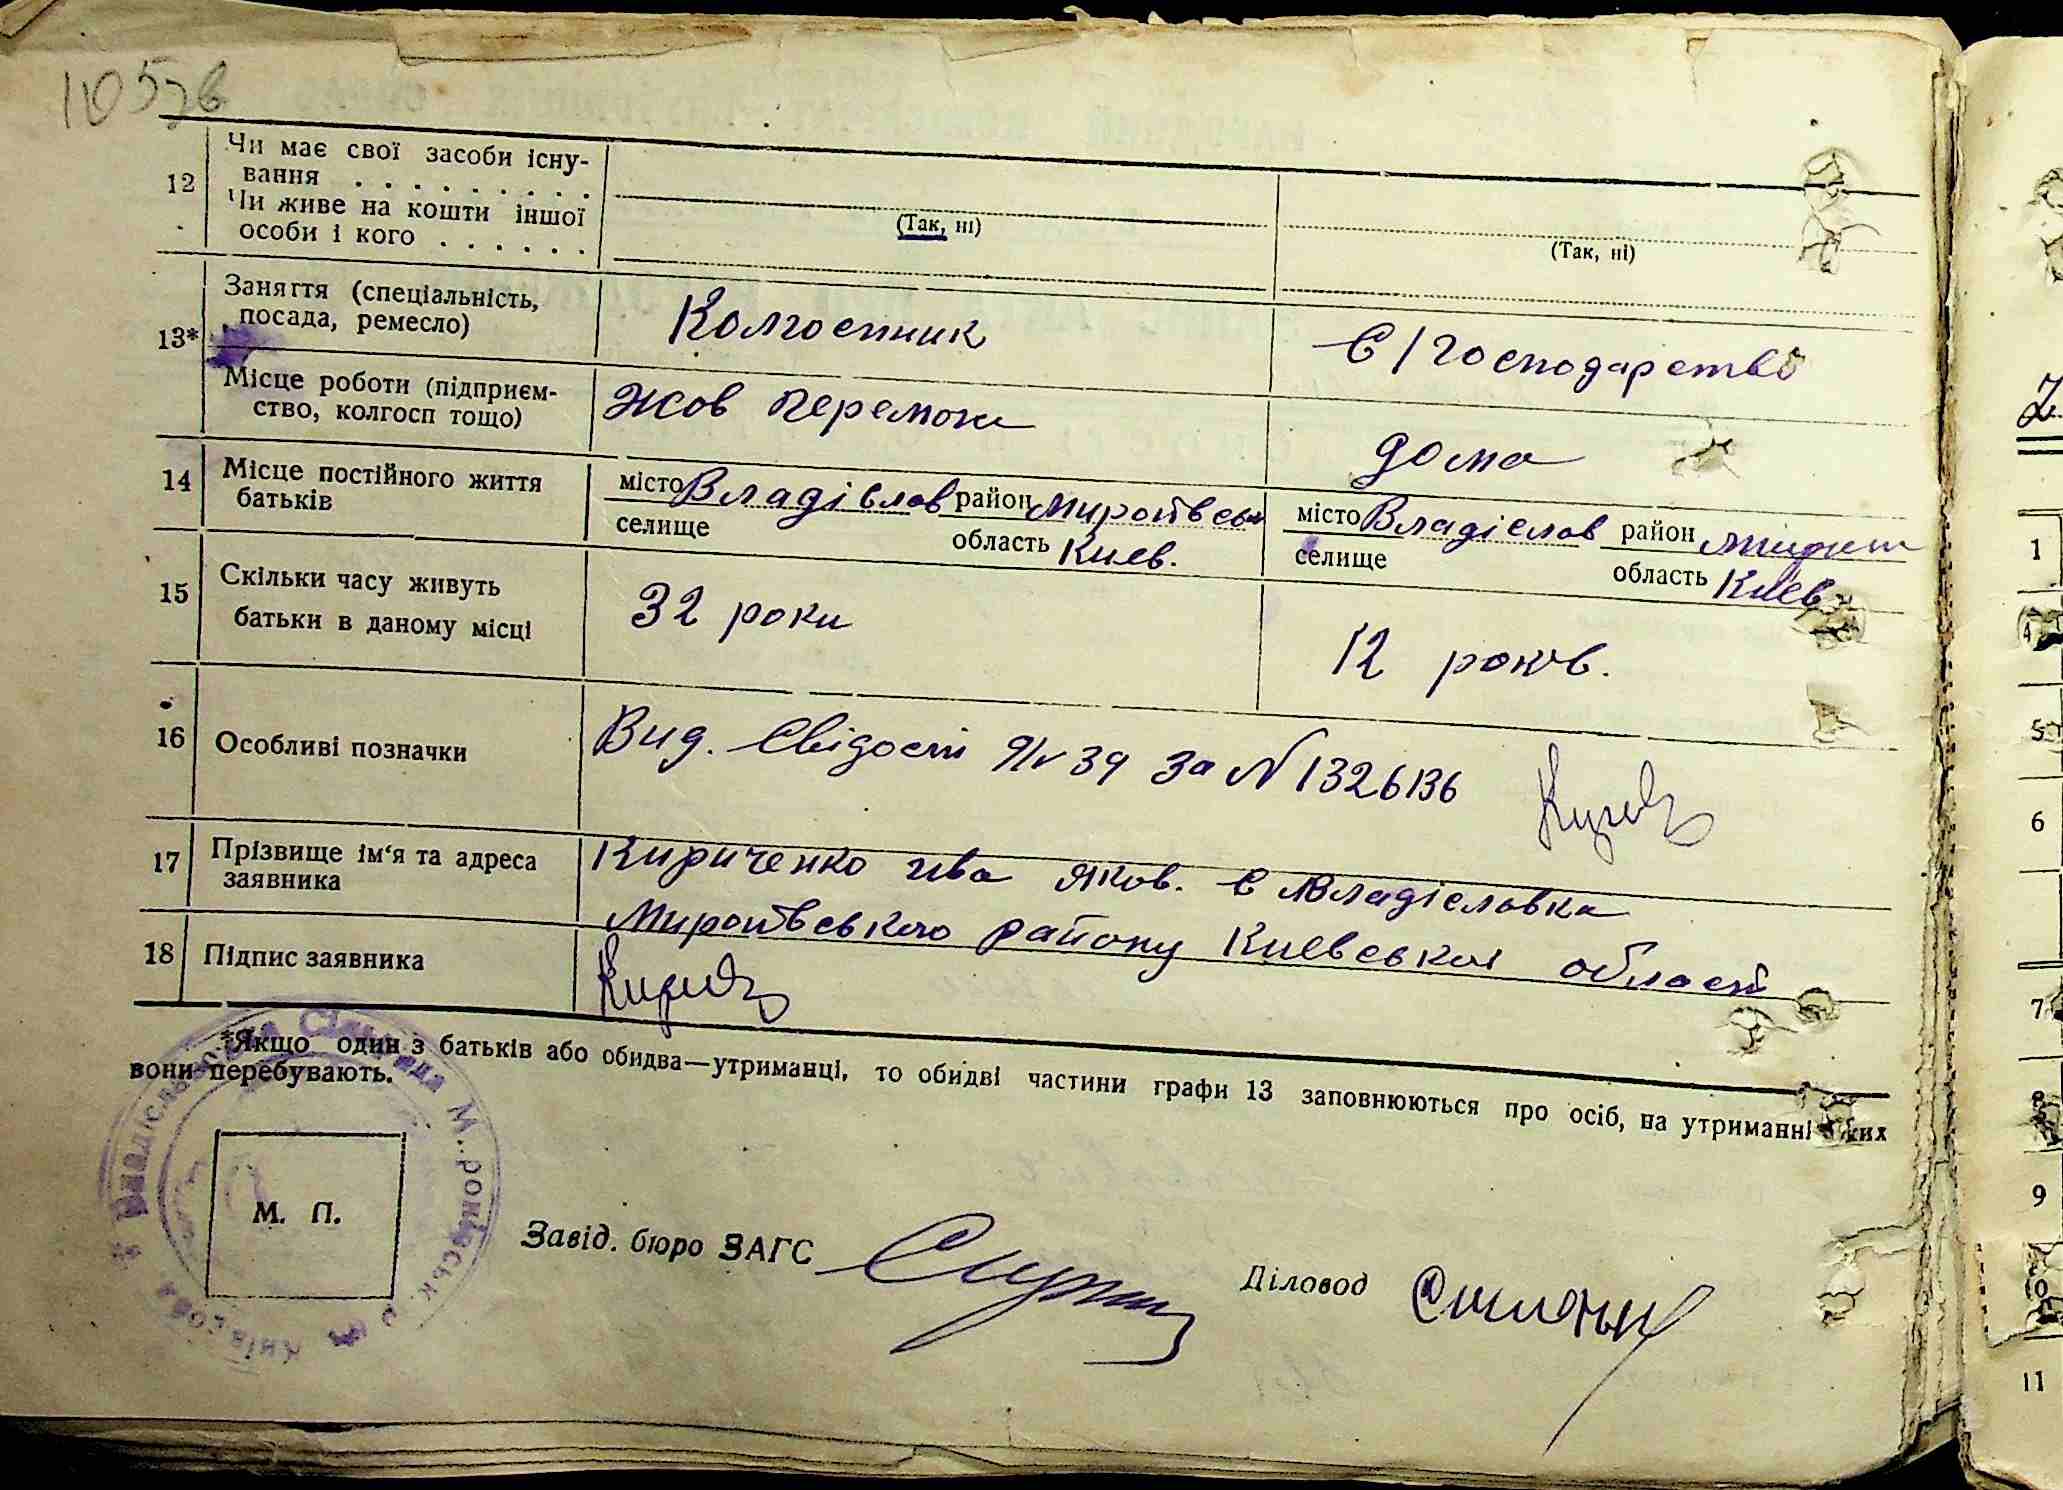 12 Чи має свої засоби існу-
вання . . . . . . . . .
Чи живе на кошти іншої
особи і кого . . . . . .
(Так, ні) (Так, ні)
13* Заняття (спеціальність,
посада, ремесло) Колгоспник С/господарство
Місце роботи (підприєм-
ство, колгосп тощо) Жов перемоги дома
14 Місце постійного життя
батьків
місто Владіслав район Миронівськ місто Владіслав район
селище область Киев. селище область Киев
15 Скільки часу живуть
батьки в даному місці 32 роки 12 років.
16 Особливі позначки Вид. Свідост 39 За N 1326136
17 Прізвище ім'я та адреса
заявника Кириченко Ива Яков. С Владіславка
Миронівського району Киевської області
18 Підпис заявника
*Якщо один з батьків або обидва—утриманці, то обидві частини графи 13 заповнюються про осіб, на утриманні яких
вони перебувають.
М. П.
Завід. бюро ЗАГС Діловод
1
4
5
6
7
8
9
10
11